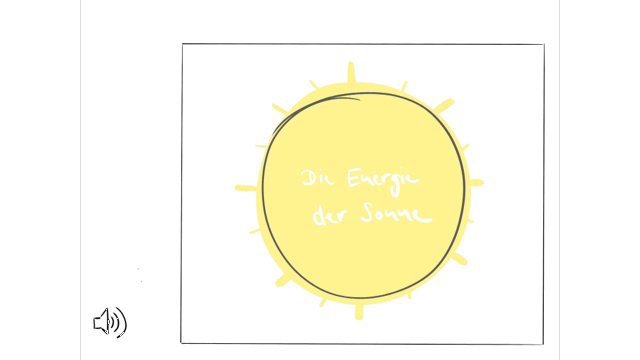 Die Energie
der Sonne